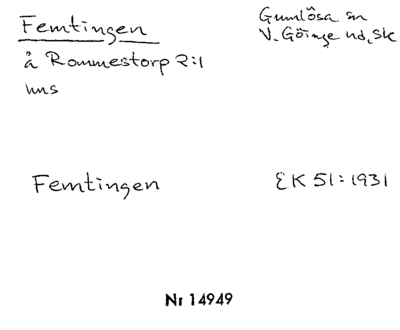 Femtingen
Gumlösa sn
V. Göinge hd, Sk
å Rommestorp 2:1
hns
Femtingen
EK 51:1931
Nr 14949